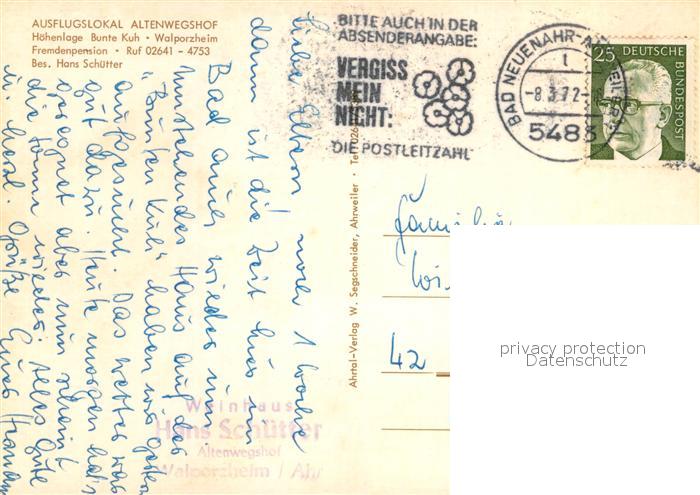 AUSFLUGSLOKAL ALTENWEGSHOF
Höhenlage Bunte Kuh • Walporzheim
Fremdenpension • Ruf 02641 - 4753
Bes. Hans Schütter
BITTE AUCH IN DER
ABSENDERANGABE:
VERGISS
MEIN
NICHT:
DIE POSTLEITZAHL
BAD NEUENAHR-A
-8.3.72
5483
25 DEUTSCHE BUNDESPOST
Liebe Eltern noch 1 Woche
dann ist die Zeit hier in
Bad wieder um.
Umstehendes Haus auf der
"Bunten Kuh" haben wir gestern
Das Wetter war
gut dazu. Heute morgen hat's
geregnet aber nun scheint
die Sonne wieder. Alles Gute
u. herzl. Grüße Eure
Ahrtal-Verlag W. Segschneider, Ahrweiler • Tel.
Familie
42
Weinhaus
Hans Schütter
Altenwegshof
Walporzheim / Ahr
privacy protection
Datenschutz